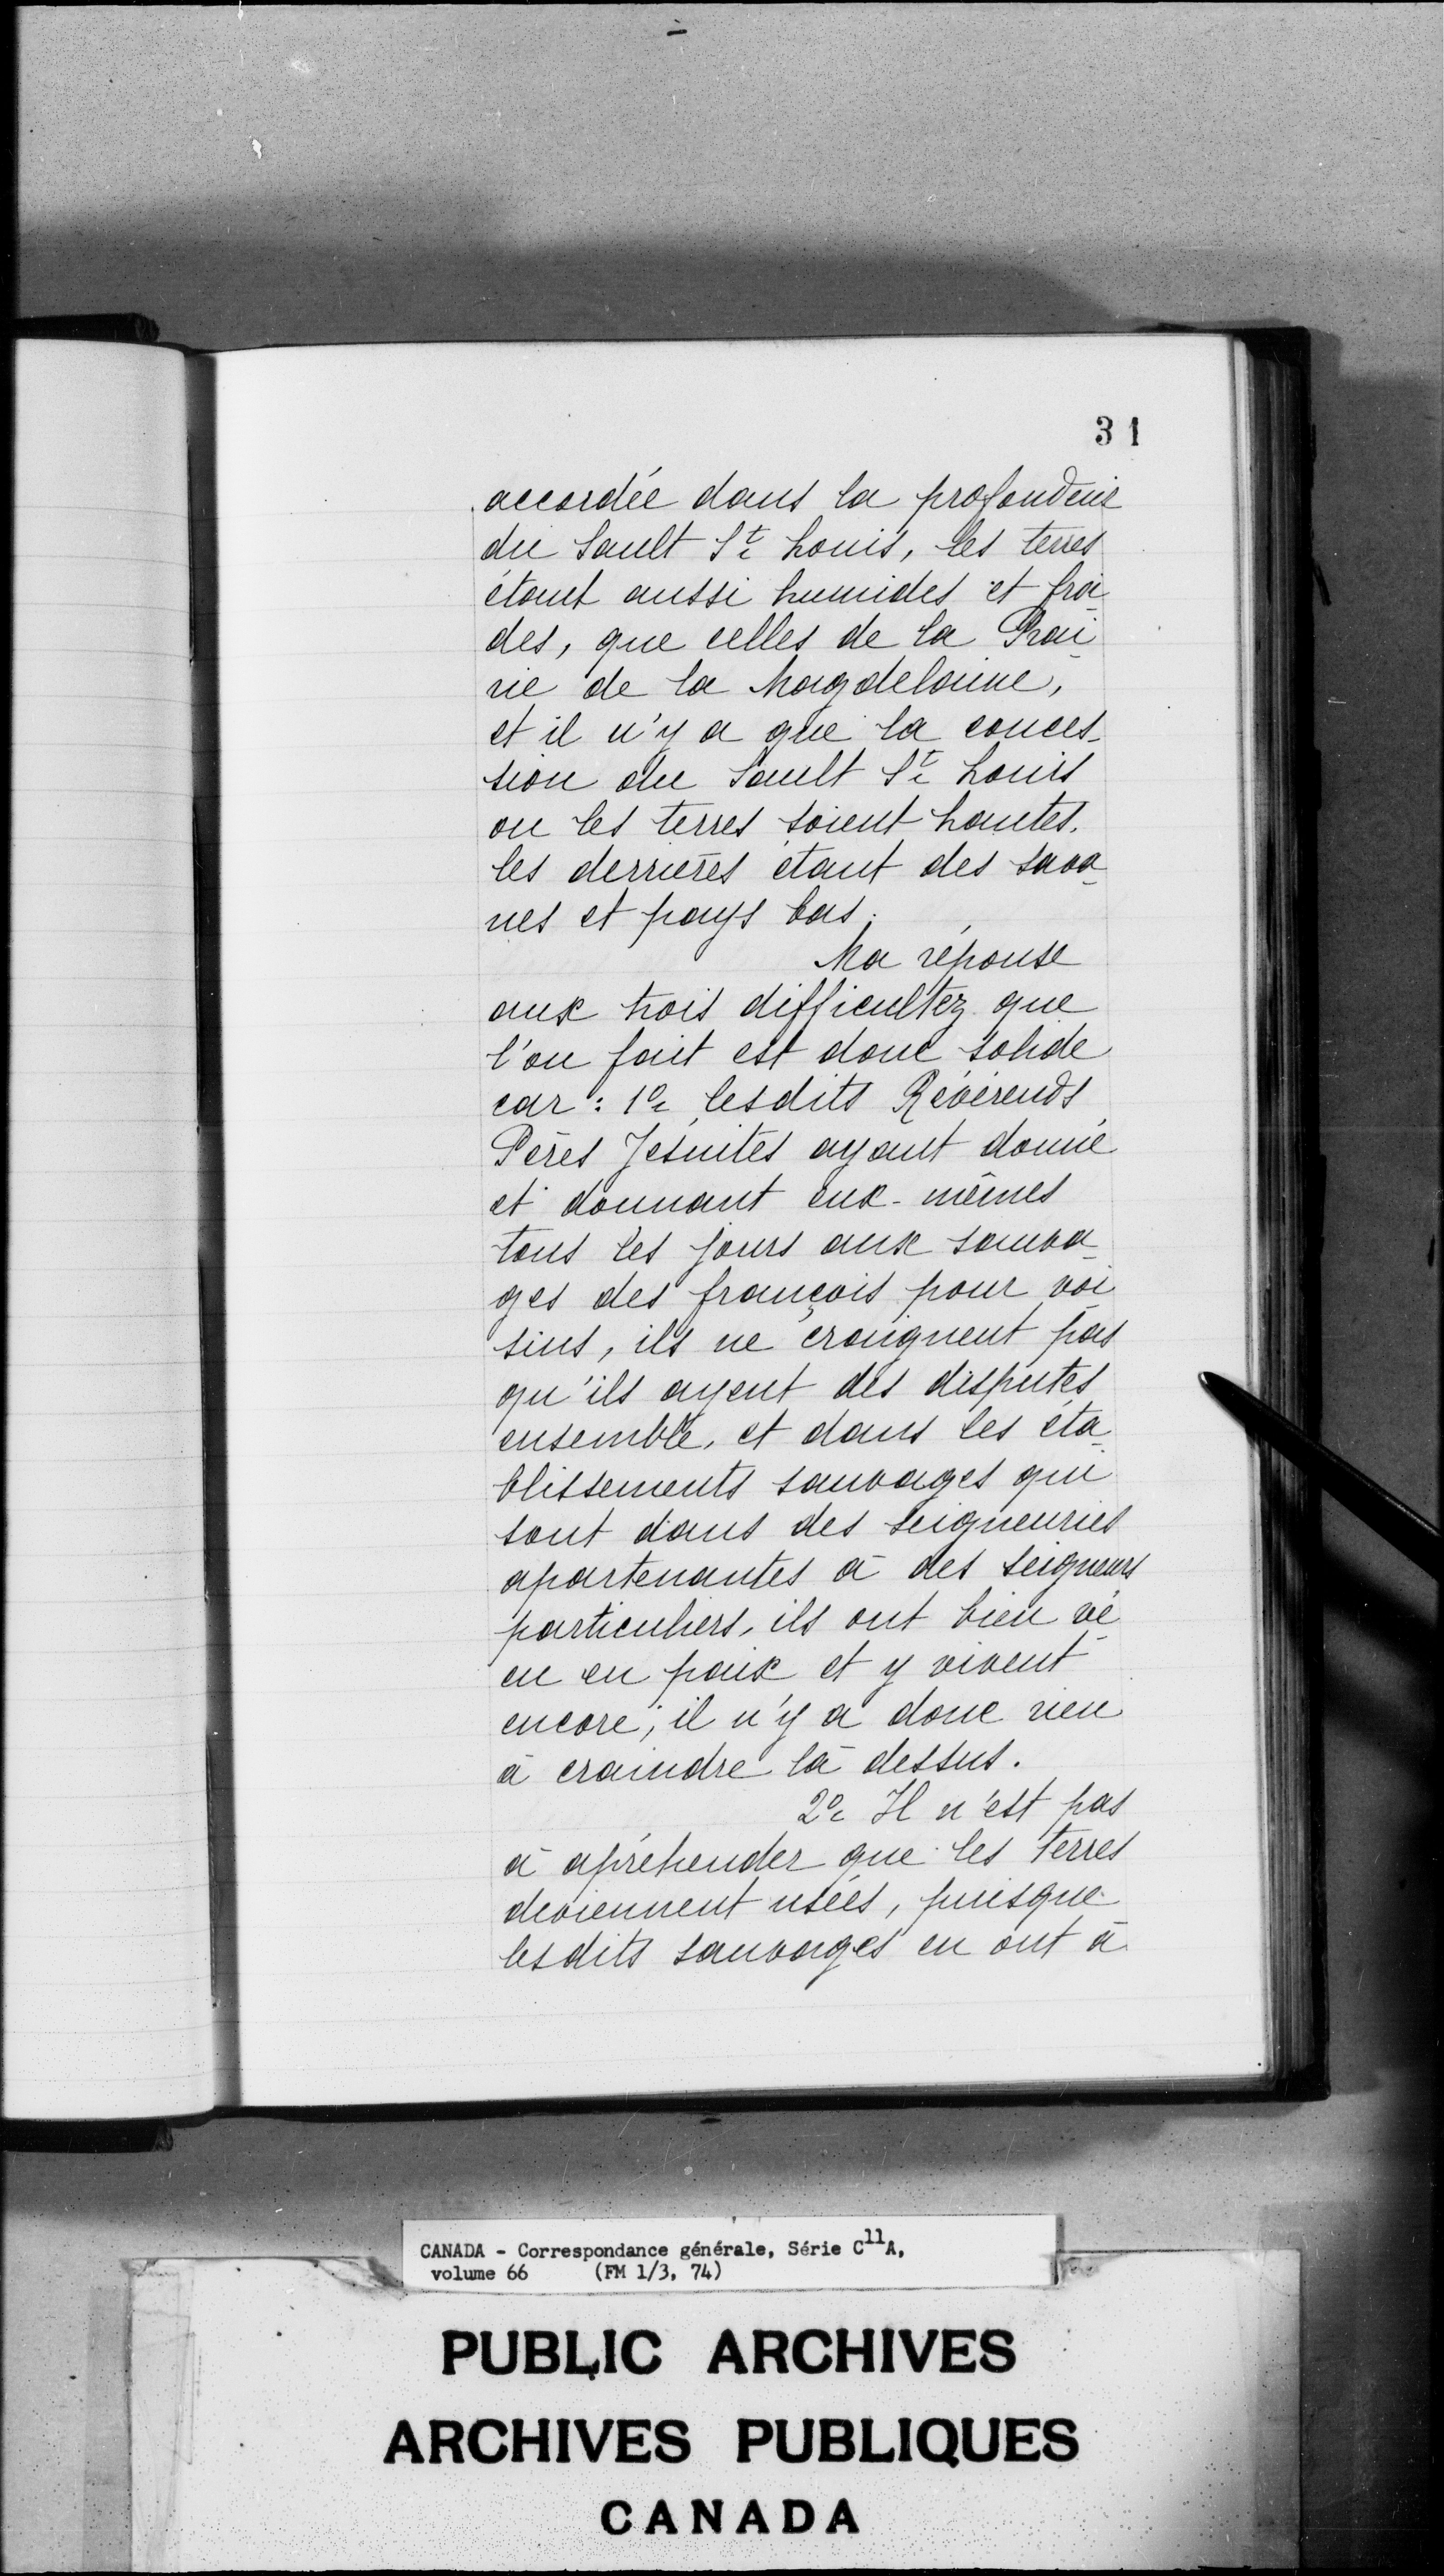 31
accordée dans la profondeur
du Sault St. Louis, les terres
étant aussi humides et froi-
des, que celles de la Prai-
rie de la Magdelaine,
et il n'y a que la conces-
sion du Sault St. Louis
ou les terres soient hautes.
les derrières étant des sava-
nes et pays bas.
Ma réponse
aux trois difficultez que
l'on fait est donc solide
car : 1o. lesdits Révérends
Pères Jesuites ayant donné
et donnant eux-mêmes
tous les jours aux sauva-
ges des françois pour voi-
sins, ils ne craignent pas
qu'ils ayent des disputes
ensemble, et dans les éta-
blissements sauvages qui
sont dans des seigneuries
apartenantes à des seigneurs
particuliers, ils ont bien vé-
cu en paix et y vivent
encore; il n'y a donc rien
à craindre là dessus.
2o. Il n'est pas
à apréhender que les terres
deviennent usées, puisque
lesdits sauvages en ont à
CANADA - Correspondance générale, Série C11A,
volume 66 (FM 1/3, 74)
PUBLIC ARCHIVES
ARCHIVES PUBLIQUES
CANADA